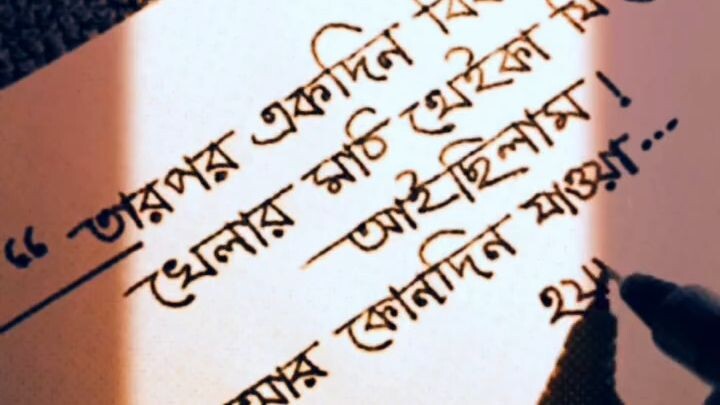 “ তারপর একদিন
খেলার মাঠ থেইকা
আইছিলাম !
আর কোনদিন যাওয়া...